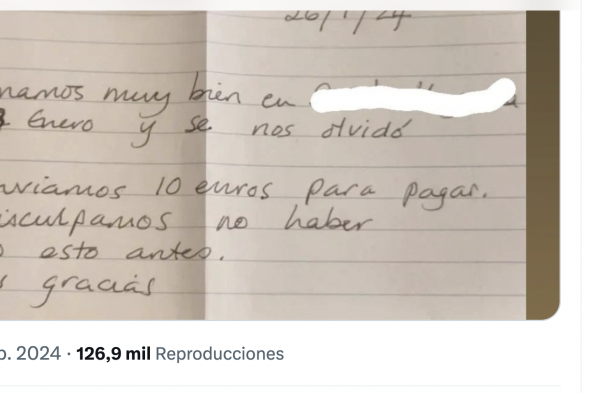 26/1/24
namos muy bien en
Enero y se nos olvidó
nviamos 10 euros para pagar.
isculpamos no haber
o esto antes.
s gracias
b. 2024 · 126,9 mil Reproducciones